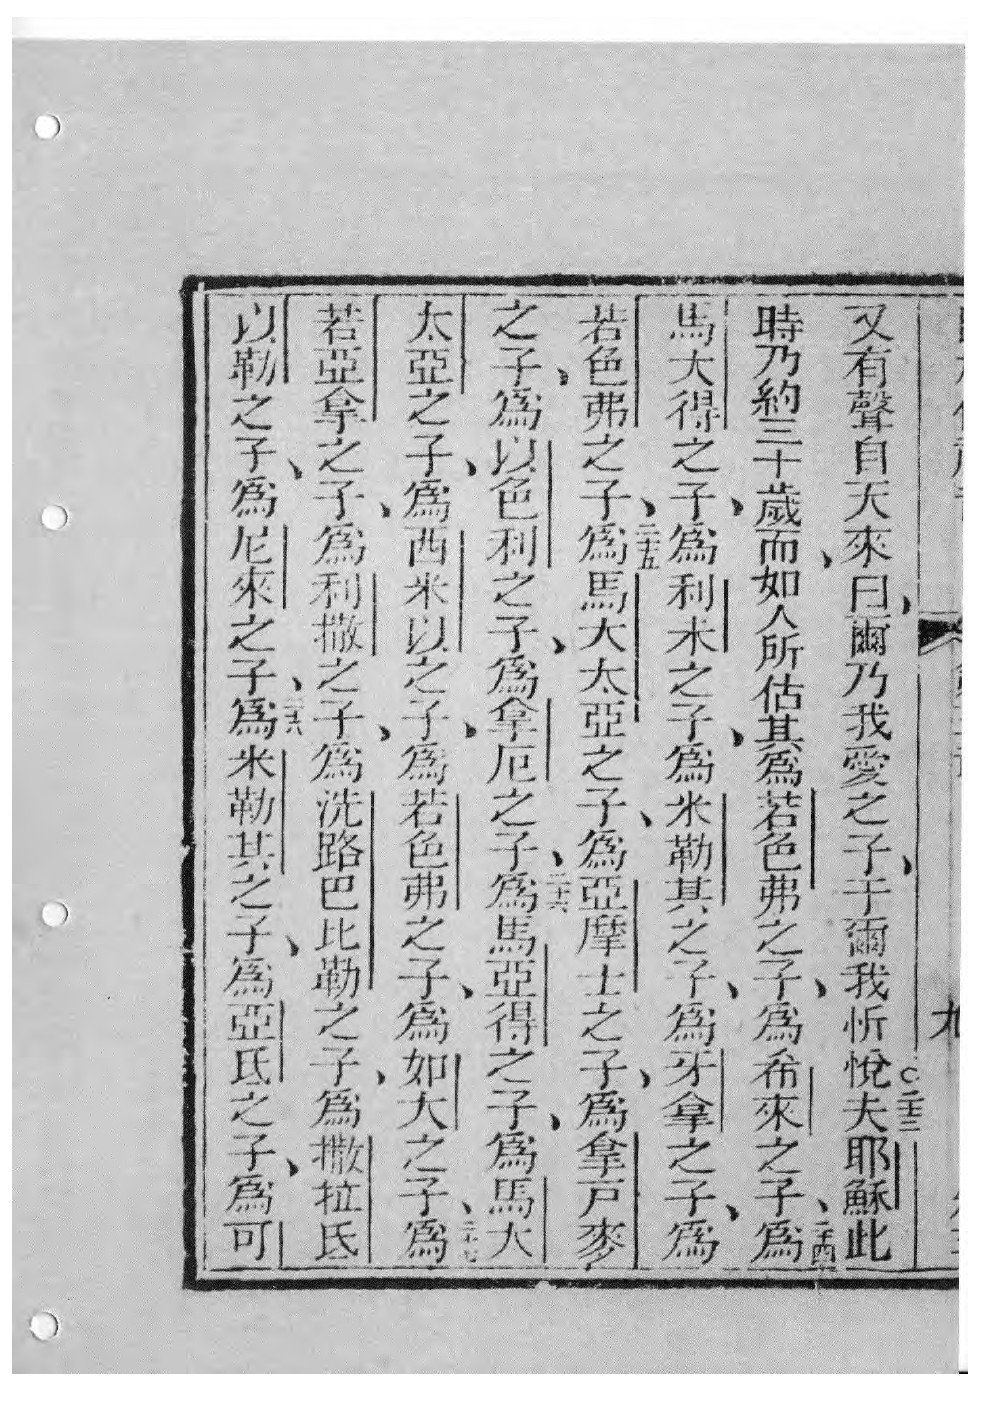 又有聲自天來曰、爾乃我愛之子、于爾我忻悅。二十三夫耶穌此
時乃約三十歲、而如人所估其爲若色弗之子、爲希來之子、二十四爲
馬大得之子、爲利未之子、爲米勒其之子、爲牙拿之子、爲
若色弗之子、二十五爲馬大太亞之子、爲亞摩士之子、爲拿戸麥
之子、爲以色利之子、爲拿厄之子、二十六爲馬亞得之子、爲馬大
太亞之子、爲西米以之子、爲若色弗之子、爲如大之子、二十七爲
若亞拿之子、爲利撒之子、爲洗路巴比勒之子、爲撒拉氐
以勒之子、爲尼來之子、二十八爲米勒其之子、爲亞氐之子、爲可
九